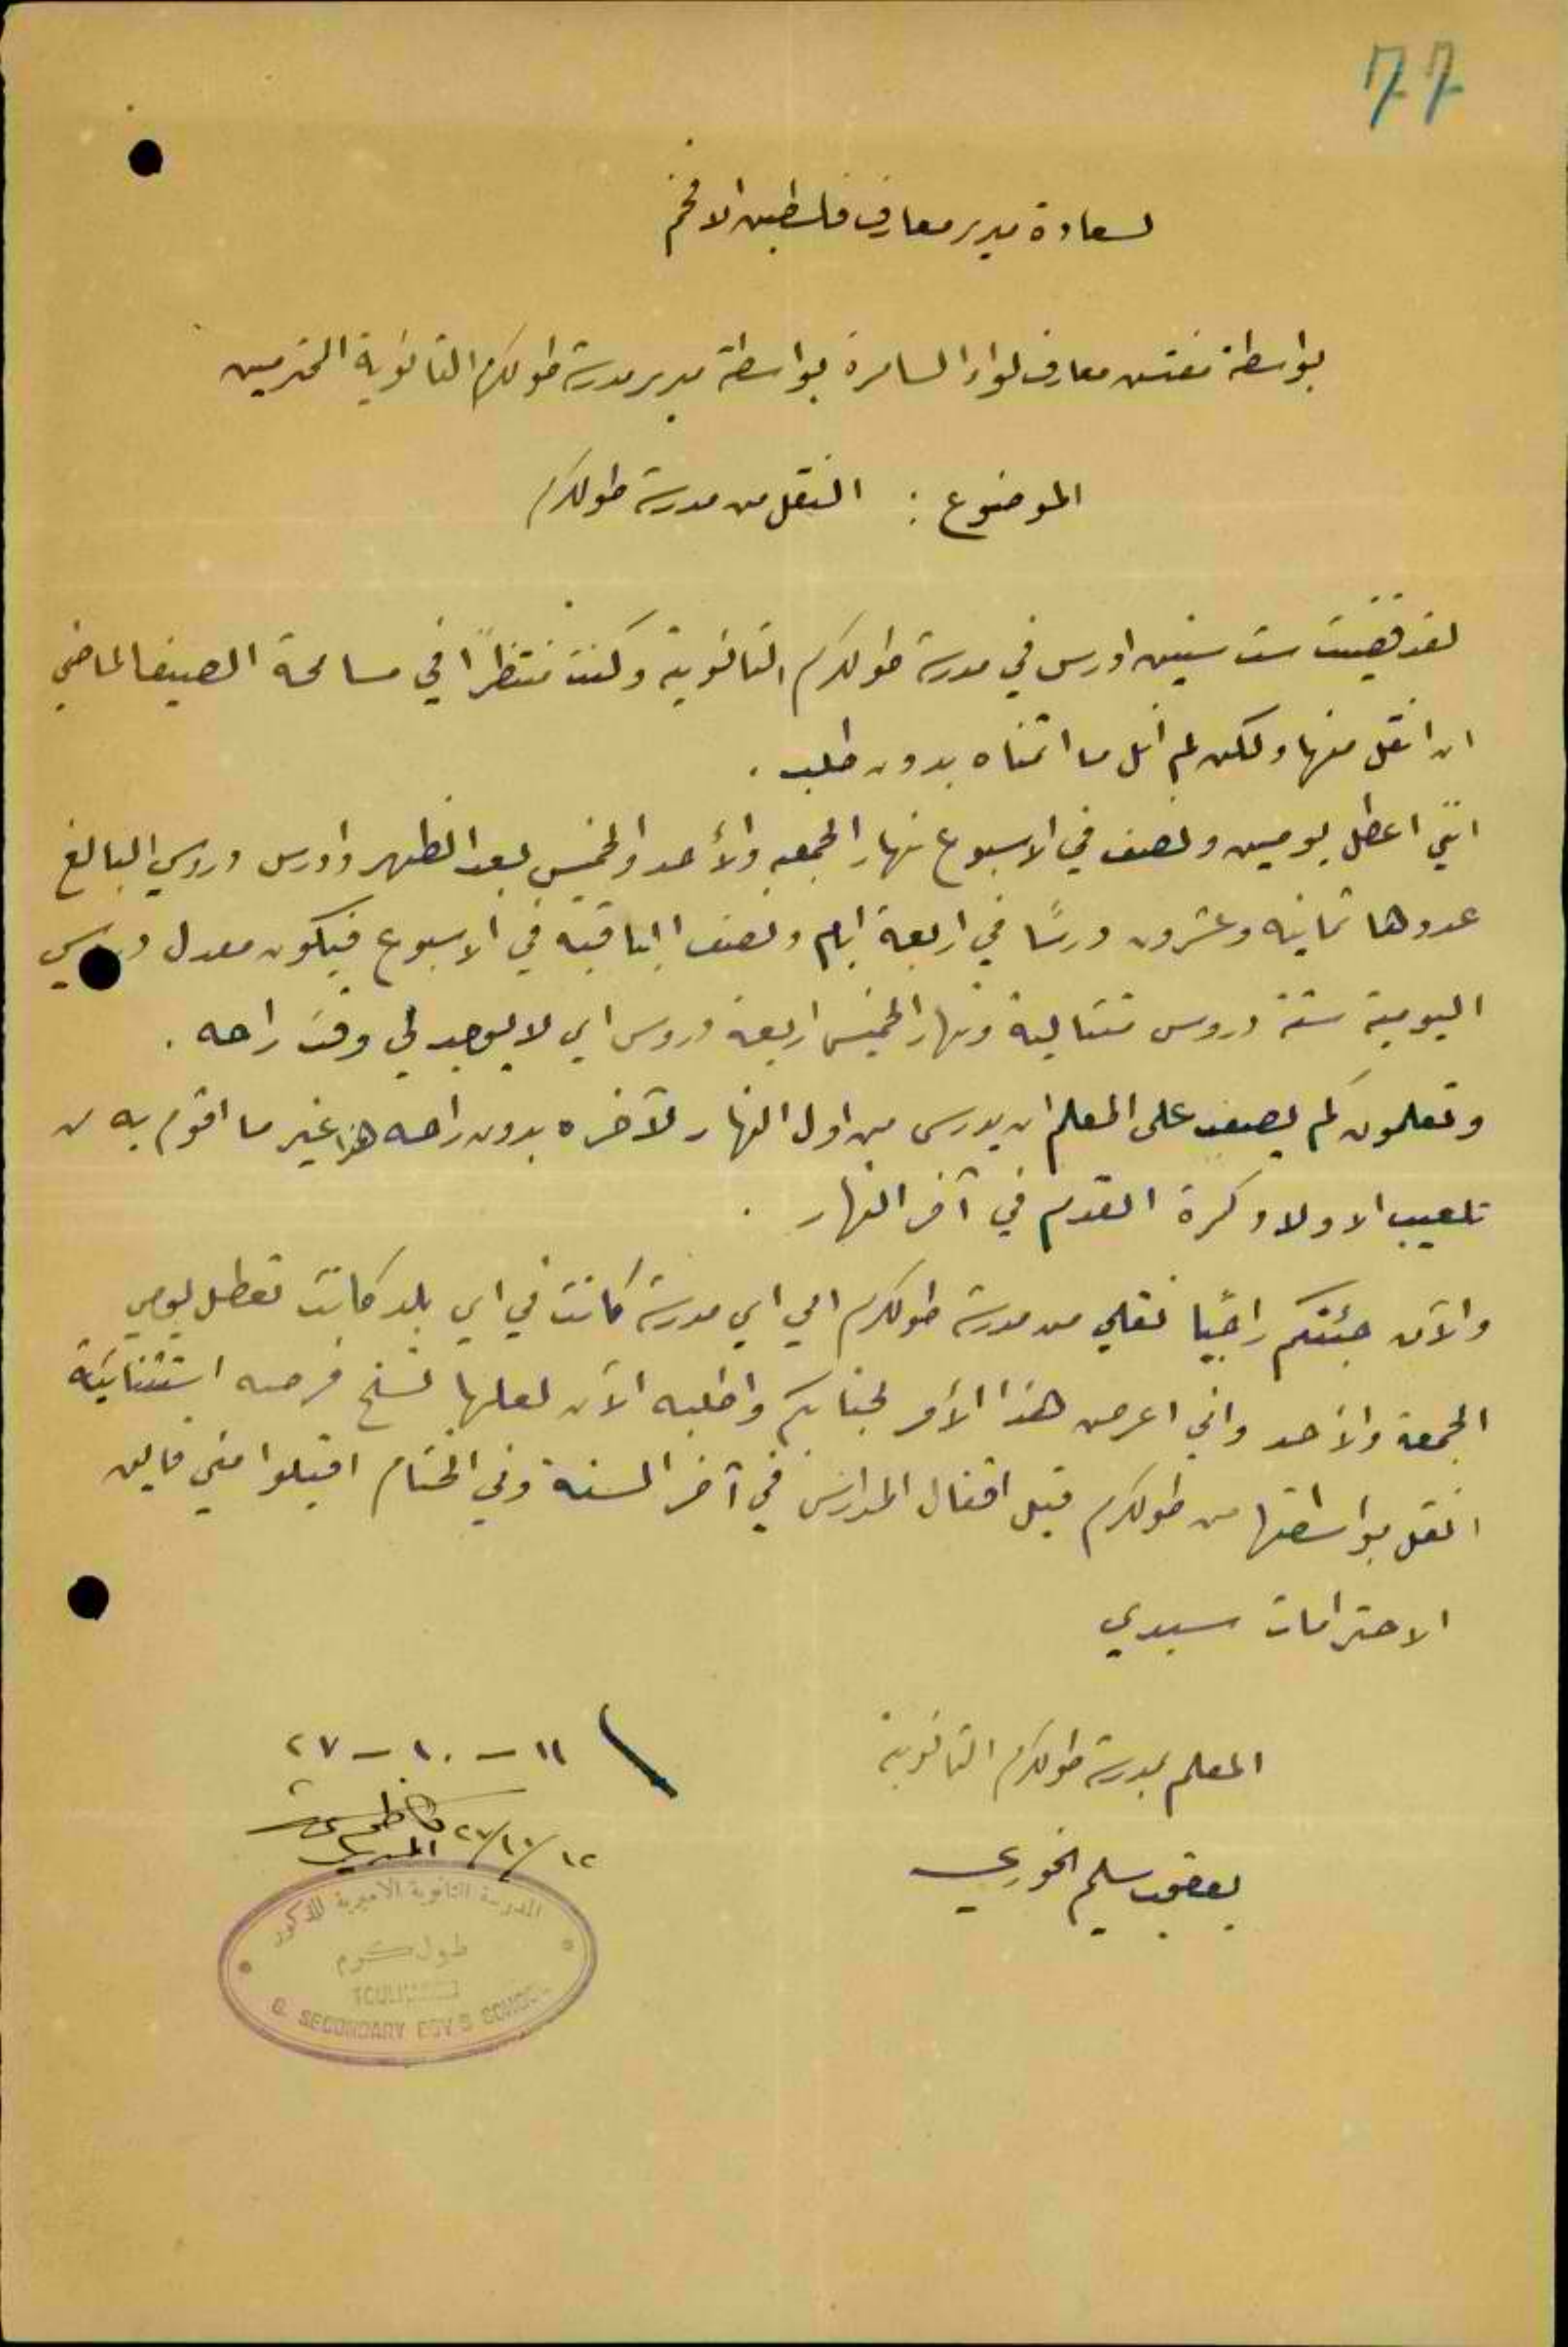 77
لسعادة مدير معارف فلسطين الافخم
بواسطة مفتش معارف لواء السامرة بواسطة مدير مدرسة طولكرم الثانوية المحترمين
الموضوع : النقل من مدرسة طولكرم
لقد قضيت ست سنين ادرس في مدرسة طولكرم الثانوية وكنت منتظرًا في مسامحة الصيف الماضي
ان انقل منها ولكن لم انل ما اتمناه بدون طلب .
انني اعطل يومين ونصف في الاسبوع نهار الجمعه والأحد والخميس بعد الظهر وادرس دروسي البالغ
عددها ثمانيه وعشرون درسًا في اربعة ايام ونصف الباقية في الاسبوع فيكون معدل دروسي
اليومية ستة دروس متتالية ونهار الخميس اربعة دروس اي لا يوجد لي وقت راحه .
وتعلمون كم يصعب على المعلم ان يدرس من اول النهار لآخره بدون راحه هذا غير ما اقوم به من
تلعيب الاولاد كرة القدم في آخر النهار .
والآن جئتكم راجيًا نقلي من مدرسة طولكرم الى اي مدرسة كانت في اي بلد كانت تعطل يومي
الجمعة والأحد واني اعرض هذا الأمر لجنابكم واطلبه الآن لعلها تسنح فرصه استثنائية
انقل بواسطتها من طولكرم قبل اقفال المدارس في آخر السنة وفي الختام اقبلوا مني فايق
الاحترامات سيدي
المعلم بمدرسة طولكرم الثانوية
يعقوب سليم الخوري
١١ – ١٠ – ٢٧
١٢/١٠/٢٧
المدير
المدرسة الثانوية الاميرية للذكور
طول كرم
G. SECONDARY BOY'S SCHOOL